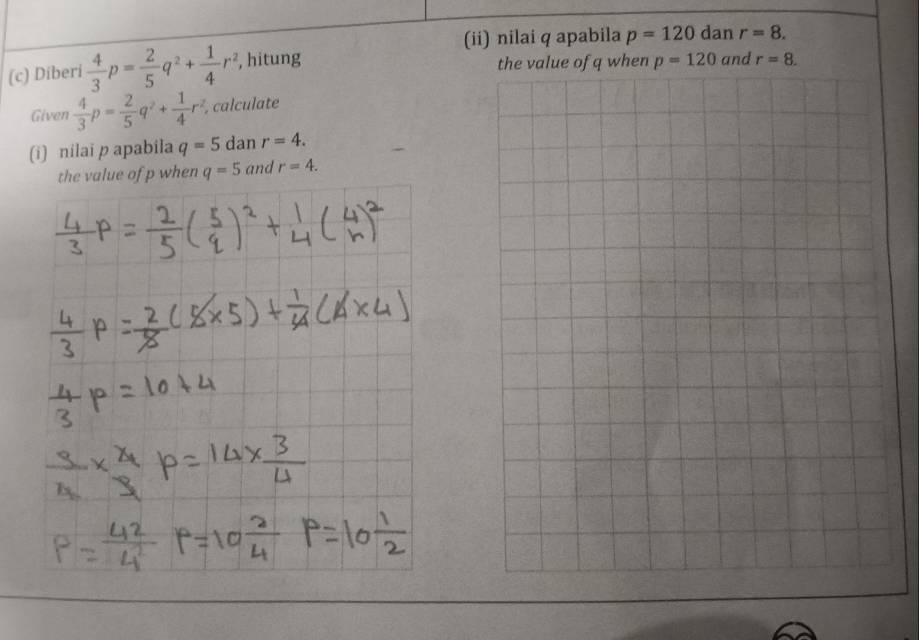 (c) Diberi 4/3 p = 2/5 q² + 1/4 r², hitung
Given 4/3 p = 2/5 q² + 1/4 r², calculate
(i) nilai p apabila q = 5 dan r = 4.
the value of p when q = 5 and r = 4.
4/3 P = 2/5 (5/q)² + 1/4 (4/r)²
4/3 P = 2/5 (5×5) + 1/4 (4×4)
4/3 P = 10 + 4
3/4 × 4/3 P = 14 × 3/4
P = 42/4 P = 10 2/4 P = 10 1/2
(ii) nilai q apabila p = 120 dan r = 8.
the value of q when p = 120 and r = 8.